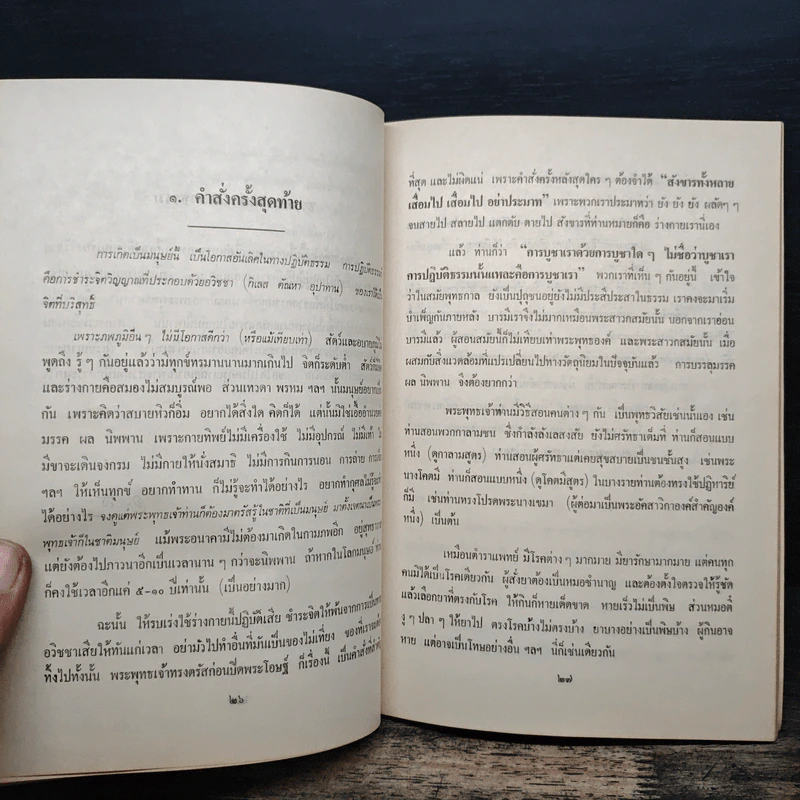 ๑. คำสั่งครั้งสุดท้าย
การเกิดเป็นมนุษย์นี้ เป็นโอกาสอันเดิดในทางปฏิบัติธรรม การปฏิบัติธรรม
คือการชำระจิตวิญญาณที่ประกอบด้วยอวิชชา (กิเลส ตัณหา อุปาทาน) ของเราให้เป็น
จิตที่บริสุทธิ์
เพราะภพภูมิอื่นๆ ไม่มีโอกาสดีกว่า (หรือแม้เทียบเท่า) สัตว์และอบายภูมิ
พูดถึง รู้ๆ กันอยู่แล้วว่ามีทุกข์ทรมานนานมากเกินไป จิตก็ระดับต่ำ
และร่างกายคือสมองไม่สมบูรณ์พอ ส่วนเทวดา พรหม ฯลฯ นั้นมนุษย์อยาก
กัน เพราะคิดว่าสบายหิวก็อิ่ม อยากได้สิ่งใด คิดก็ได้ แต่นั้นมิใช่เอื้ออำนวย
มรรค ผล นิพพาน เพราะกายทิพย์ไม่มีเครื่องใช้ ไม่มีอุปกรณ์ ไม่มีเท้า
มีขาจะเดินจงกรม ไม่มีกายให้นั่งสมาธิ ไม่มีการกินการนอน การถ่าย การ
ฯลฯ ให้เห็นทุกข์ อยากทำทาน ก็ไม่รู้จะทำได้อย่างไร อยากทำกุศลไม่รู้จะ
ได้อย่างไร จงดูแต่พระพุทธเจ้าท่านก็ต้องมาตรัสรู้ในชาติที่เป็นมนุษย์
พุทธเจ้าก็ในชาติมนุษย์ แม้พระอนาคามีไม่ต้องมาเกิดในกามภพอีก อยู่
แต่ยังต้องไปภาวนาอีกเป็นเวลานาน ๆ กว่าจะนิพพาน ถ้าหากในโลกมนุษย์
ก็คงใช้เวลาอีกแค่ ๕-๑๐ ปีเท่านั้น (เป็นอย่างมาก)
ฉะนั้น ให้รีบเร่งใช้ร่างกายนี้ปฏิบัติเสีย ชำระจิตให้พ้นจากการเป็น
อวิชชาเสียให้ทันแก่เวลา อย่ามัวไปทำอื่นที่มันเป็นของไม่เที่ยง ของที่เรา
ทิ้งไปทั้งนั้น พระพุทธเจ้าทรงตรัสก่อนปิดพระโอษฐ์ ก็เรื่องนี้ เป็นคำสั่ง
๒๖
ที่สุด และไม่ผิดแน่ เพราะคำสั่งครั้งหลังสุดใคร ๆ ต้องจำได้ “สังขารทั้งหลาย
เสื่อมไป เสื่อมไป อย่าประมาท” เพราะพวกเราประมาทว่า ยัง ยัง ยัง ผลัดๆ ๆ
จนสายไป สลายไป แตกดับ ตายไป สังขารที่ท่านหมายก็คือ ร่างกายเรานี่เอง
แล้ว ท่านก็ว่า “การบูชาเราด้วยการบูชาใด ๆ ไม่ชื่อว่าบูชาเรา
การปฏิบัติธรรมนั้นแหละคือการบูชาเรา” พวกเราที่เห็น ๆ กันอยู่นี้ เข้าใจ
ว่าในสมัยพุทธกาล ยังเป็นปุถุชนอยู่ยังไม่มีประสีประสาในธรรม เราคงจะมาเริ่ม
บำเพ็ญกันภายหลัง บารมีเราจึงไม่มากเหมือนพระสาวกสมัยนั้น นอกจากเราอ่อน
บารมีแล้ว ผู้สอนสมัยนี้ก็ไม่เทียบเท่าพระพุทธองค์ และพระสาวกสมัยนั้น เมื่อ
ผสมกับสิ่งแวดล้อมที่แปรเปลี่ยนไปทางวัตถุนิยมในปัจจุบันแล้ว การบรรลุมรรค
ผล นิพพาน จึงต้องยากกว่า
พระพุทธเจ้าท่านมีวิธีสอนคนต่าง ๆ กัน เป็นพุทธวิสัยเช่นนั้นเอง เช่น
ท่านสอนพวกกาลามชน ซึ่งกำลังลังเลสงสัย ยังไม่ศรัทธาเต็มที่ ท่านก็สอนแบบ
หนึ่ง (ดูกาลามสูตร) ท่านสอนผู้ศรัทธาแต่เคยสุขสบายเป็นชนชั้นสูง เช่นพระ
นางโคตมี ท่านก็สอนแบบหนึ่ง (ดูโคตมีสูตร) ในบางรายท่านต้องทรงใช้ปฏิหาริย์
ก็มี เช่นท่านทรงโปรดพระนางเขมา (ผู้ต่อมาเป็นพระอัครสาวิกาองค์สำคัญองค์
หนึ่ง) เป็นต้น
เหมือนตำราแพทย์ มีโรคต่าง ๆ มากมาย มียารักษามากมาย แต่คนทุก
คนมิได้เป็นโรคเดียวกัน ผู้สั่งยาต้องเป็นหมอชำนาญ และต้องตั้งใจตรวจให้รู้ชัด
แล้วเลือกยาที่ตรงกับโรค ให้กินก็หายเด็ดขาด หายเร็วไม่เป็นพิษ ส่วนหมอดี
งู ๆ ปลา ๆ ให้ยาไป ตรงโรคบ้างไม่ตรงบ้าง ยาบางอย่างเป็นพิษบ้าง ผู้กินอาจ
หาย แต่อาจเป็นโทษอย่างอื่น ฯลฯ นี่ก็เช่นเดียวกัน
๒๗